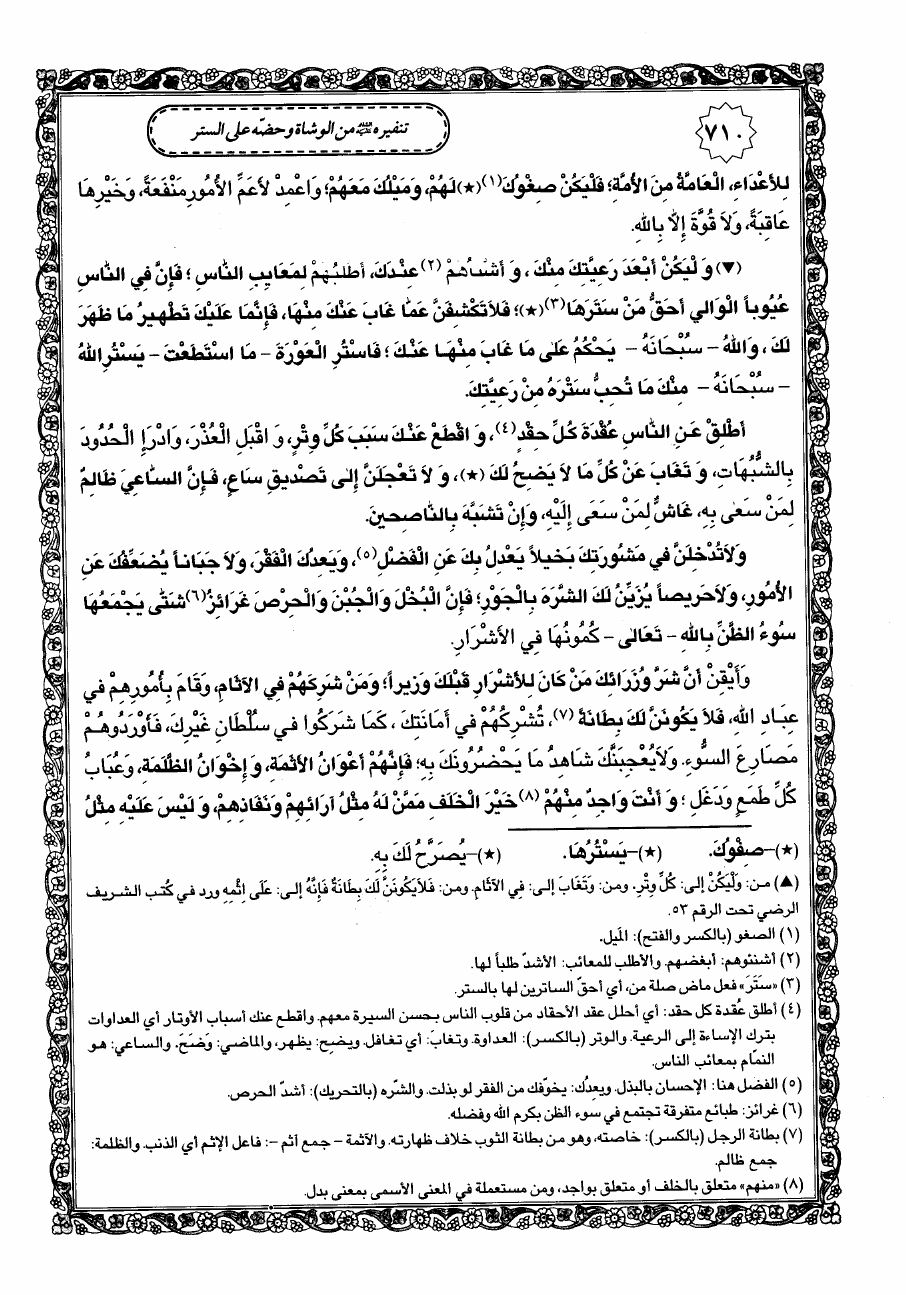 ٧١٠
تنفيره عليه السلام من الوشاة وحضّه على الستر
لِلأَعْدَاءِ، الْعَامَّةُ مِنَ الأُمَّةِ؛ فَلْيَكُنْ صِغْوُكَ(١)(★)لَهُمْ، وَمَيْلُكَ مَعَهُمْ؛ وَاعْمِدْ لأَعَمِّ الأُمُورِ مَنْفَعَةً، وَخَيْرِهَا
عَاقِبَةً، وَلاَ قُوَّةَ إِلاَّ بِاللهِ.
(▼) وَ لْيَكُنْ أَبْعَدَ رَعِيَّتِكَ مِنْكَ، وَ أَشْنَأَهُمْ(٢) عِنْدَكَ، أَطْلَبُهُمْ لِمَعَايِبِ النَّاسِ؛ فَإِنَّ فِي النَّاسِ
عُيُوباً الْوَالِي أَحَقُّ مَنْ سَتَرَهَا(٣)(★)؛ فَلاَ تَكْشِفَنَّ عَمَّا غَابَ عَنْكَ مِنْهَا، فَإِنَّمَا عَلَيْكَ تَطْهِيرُ مَا ظَهَرَ
لَكَ، وَاللهُ – سُبْحَانَهُ – يَحْكُمُ عَلَى مَا غَابَ مِنْهَا عَنْكَ؛ فَاسْتُرِ الْعَوْرَةَ – مَا اسْتَطَعْتَ – يَسْتُرِ اللهُ
– سُبْحَانَهُ – مِنْكَ مَا تُحِبُّ سَتْرَهُ مِنْ رَعِيَّتِكَ.
أَطْلِقْ عَنِ النَّاسِ عُقْدَةَ كُلِّ حِقْدٍ(٤)، وَ اقْطَعْ عَنْكَ سَبَبَ كُلِّ وِتْرٍ، وَ اقْبَلِ الْعُذْرَ، وَادْرَإِ الْحُدُودَ
بِالشُّبُهَاتِ، وَ تَغَابَ عَنْ كُلِّ مَا لاَ يَضِحُ لَكَ (★)، وَ لاَ تَعْجَلَنَّ إِلَى تَصْدِيقِ سَاعٍ، فَإِنَّ السَّاعِيَ ظَالِمٌ
لِمَنْ سَعَى بِهِ، غَاشٌّ لِمَنْ سَعَى إِلَيْهِ، وَإِنْ تَشَبَّهَ بِالنَّاصِحِينَ.
وَلاَ تُدْخِلَنَّ فِي مَشُورَتِكَ بَخِيلاً يَعْدِلُ بِكَ عَنِ الْفَضْلِ(٥)، وَيَعِدُكَ الْفَقْرَ، وَلاَ جَبَاناً يُضَعِّفُكَ عَنِ
الأُمُورِ، وَلاَ حَرِيصاً يُزَيِّنُ لَكَ الشَّرَهَ بِالْجَوْرِ؛ فَإِنَّ الْبُخْلَ وَالْجُبْنَ وَالْحِرْصَ غَرَائِزُ(٦) شَتَّى يَجْمَعُهَا
سُوءُ الظَّنِّ بِاللهِ – تَعَالَى – كُمُونُهَا فِي الأَشْرَارِ.
وَأَيْقِنْ أَنَّ شَرَّ وُزَرَائِكَ مَنْ كَانَ لِلأَشْرَارِ قَبْلَكَ وَزِيراً؛ وَمَنْ شَرِكَهُمْ فِي الآثَامِ، وَقَامَ بِأُمُورِهِمْ فِي
عِبَادِ اللهِ، فَلاَ يَكُونَنَّ لَكَ بِطَانَةً (٧)، تُشْرِكُهُمْ فِي أَمَانَتِكَ، كَمَا شَرِكُوا فِي سُلْطَانِ غَيْرِكَ، فَأَوْرَدُوهُمْ
مَصَارِعَ السُّوءِ. وَلاَ يُعْجِبَنَّكَ شَاهِدُ مَا يَحْضُرُونَكَ بِهِ؛ فَإِنَّهُمْ أَعْوَانُ الأَثَمَةِ، وَ إِخْوَانُ الظَّلَمَةِ، وَعُبَابُ
كُلِّ طَمَعٍ وَدَغَلٍ؛ وَ أَنْتَ وَاجِدٌ مِنْهُمْ (٨) خَيْرَ الْخَلَفِ مِمَّنْ لَهُ مِثْلُ آرَائِهِمْ وَنَفَاذِهِمْ، وَ لَيْسَ عَلَيْهِ مِثْلُ
(★)–صِفْوُكَ. (★)–يَسْتُرُهَا. (★)–يُصَرَّحُ لَكَ بِهِ.
(▲) من: وَلْيَكُنْ إلى: كُلِّ وِتْرٍ. ومن: وَتَغَابَ إلى: فِي الآثَامِ. ومن: فَلاَ يَكُونَنَّ لَكَ بِطَانَةً فَإِنَّهُ إلى: عَلَى إِثْمِهِ ورد في كُتب الشريف
الرضي تحت الرقم ٥٣.
(١) الصغو (بالكسر والفتح): المَيل.
(٢) أشنئوهم: أبغضهم. والأطلب للمعائب: الأشدّ طلباً لها.
(٣) «سَتَرَ» فعل ماض صلة من، أي أحقّ الساترين لها بالستر.
(٤) أطلق عُقدة كل حقد: أي أحلل عقد الأحقاد من قلوب الناس بحسن السيرة معهم. واقطع عنك أسباب الأوتار أي العداوات
بترك الإساءة إلى الرعية. والوتر (بالكسر): العداوة. وتغابَ: أي تغافل. ويضح: يظهر، والماضي: وَضَحَ. والساعي: هو
النمّام بمعائب الناس.
(٥) الفضل هنا: الإحسان بالبذل. ويعدُك: يخوّفك من الفقر لو بذلت. والشَّره (بالتحريك): أشدّ الحرص.
(٦) غرائز: طبائع متفرقة تجتمع في سوء الظن بكرم الله وفضله.
(٧) بطانة الرجل (بالكسر): خاصته، وهو من بطانة الثوب خلاف ظهارته. والأثمة – جمع آثم –: فاعل الإثم أي الذنب. والظلمة:
جمع ظالم.
(٨) «منهم» متعلق بالخلف أو متعلق بواجد، ومن مستعملة في المعنى الأسمى بمعنى بدل.